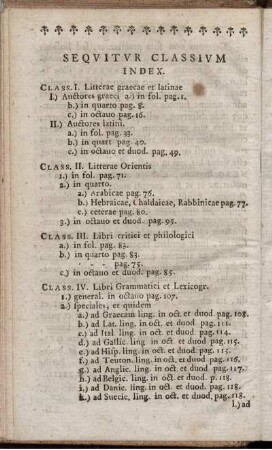 SEQVITVR CLASSIVM
INDEX.
CLASS. I. Litterae graecae et latinae
I.) Auctores graeci a.) in fol. pag. 1.
b.) in quarto pag. 8.
c.) in octauo pag. 16.
II.) Auctores latini.
a.) in fol. pag. 33.
b.) in quart pag. 40.
c.) in octauo et duod. pag, 49.
CLASS. II. Litterae Orientis
1.) in fol. pag. 71.
2.) in quarto.
a.) Arabicae pag. 76.
b.) Hebraicae, Chaldaicae, Rabbinicae pag. 77.
c.) ceterae pag. 80.
3.) in octauo et duod. pag. 95.
CLASS. III. Libri critici et philologici
a.) in fol. pag. 83.
b.) in quarto pag. 83.
- - - pag. 75.
c.) in octauo et duod. pag. 85.
CLASS. IV. Libri Grammatici et Lexicogr.
1.) general. in octauo pag. 107.
2.) speciales, et quidem
a.) ad Graecam ling. in oct. et duod pag. 108.
b.) ad Lat. ling. in oct. et duod pag. 111.
c.) ad Ital. ling. in oct. et duod pag. 114.
d.) ad Gallic. ling. in oct et duod pag. 115.
e.) ad Hisp. ling. in oct. et duod pag. 115.
f.) ad Teuton. ling. in oct. et duod pag. 116.
g.) ad Anglic. ling. in oct et duod pag. 117.
h.) ad Belgic. ling. in oct. et duod. p. 118.
i.) ad Danic. ling. in oct. et duod. pag. 118.
k.) ad Suecic, ling. in oct. et duod, pag. 118.
l.) ad